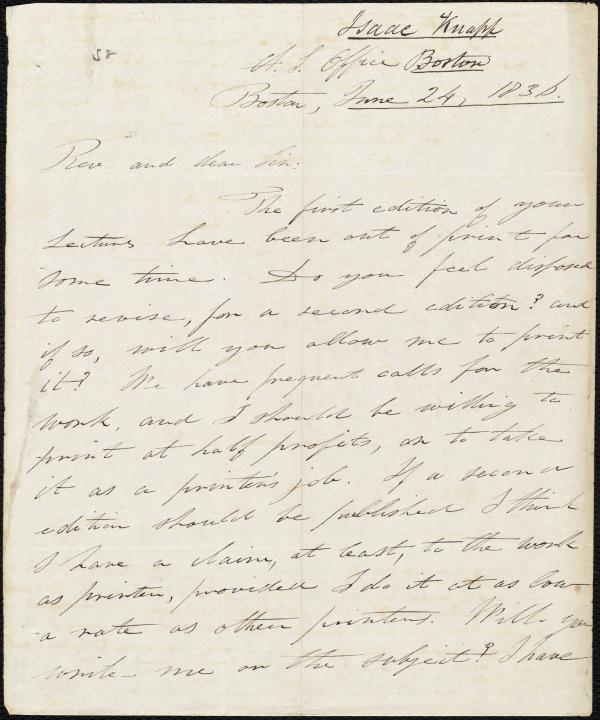 Isaac Knapp
58
A. S. Office Boston
Boston, June 24, 1836.
Rev. and dear Sir:
The first edition of your
Lectures have been out of print for
some time. Do you feel disposed
to revise, for a second edition? and
if so, will you allow me to print
it? We have frequent calls for the
work, and I should be willing to
print at half profits, or to take
it as a printer's job. If a second
edition should be published I think
I have a claim, at least, to the work
as printer, provided I do it at as low
a rate as other printers. Will you
write me on the subject? I have